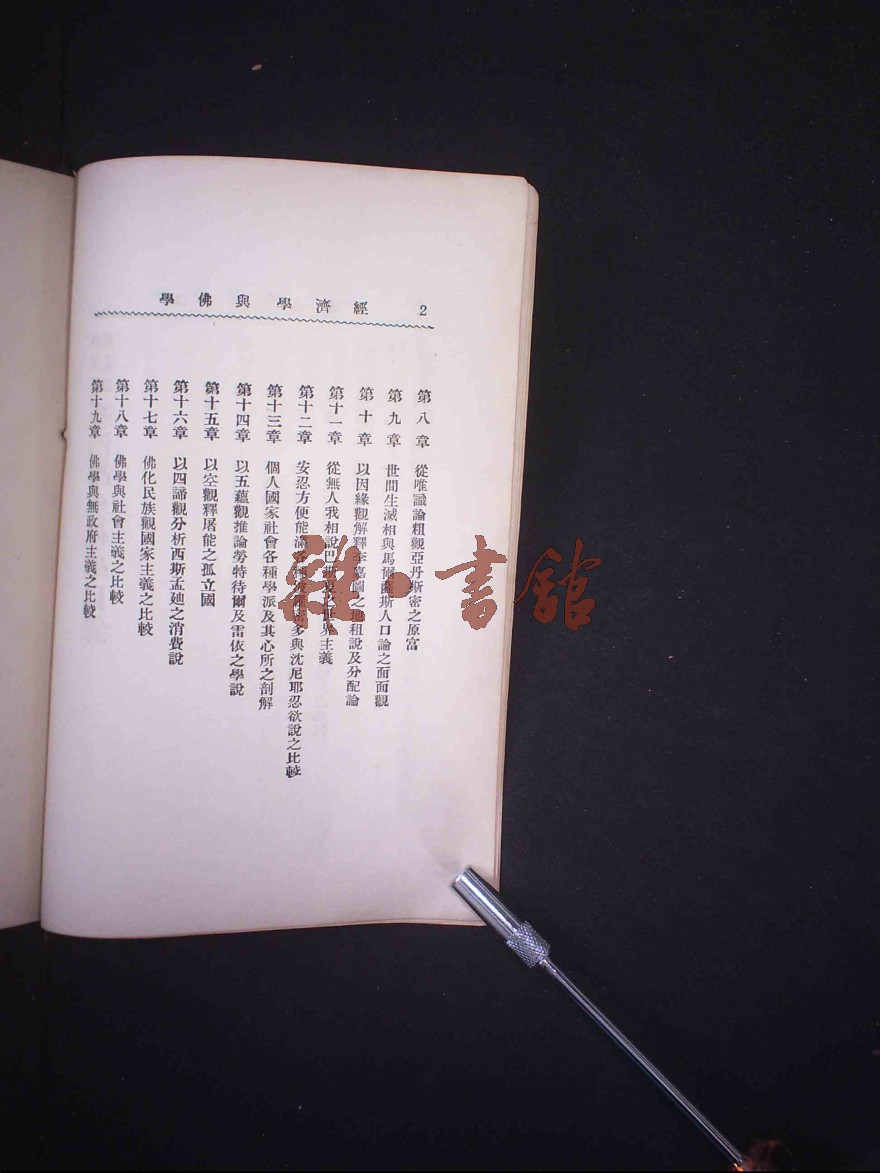 經濟學與佛學 2
第八章 從唯識論粗觀亞丹斯密之原富
第九章 世間生滅相與馬爾薩斯人口論之面面觀
第十章 以因緣觀解釋李嘉圖之地租說及分配論
第十一章 從無人我相說巴斯夏之世界主義
第十二章 安忍方便能滿各種波羅密多與沈尼耶忍欲說之比較
第十三章 個人國家社會各種學派及其心所之剖解
第十四章 以五蘊觀推論勞特待爾及雷依之學說
第十五章 以空觀釋屠能之孤立國
第十六章 以四諦觀分析西斯孟廸之消費說
第十七章 佛化民族觀國家主義之比較
第十八章 佛學與社會主義之比較
第十九章 佛學與無政府主義之比較
雜·書館